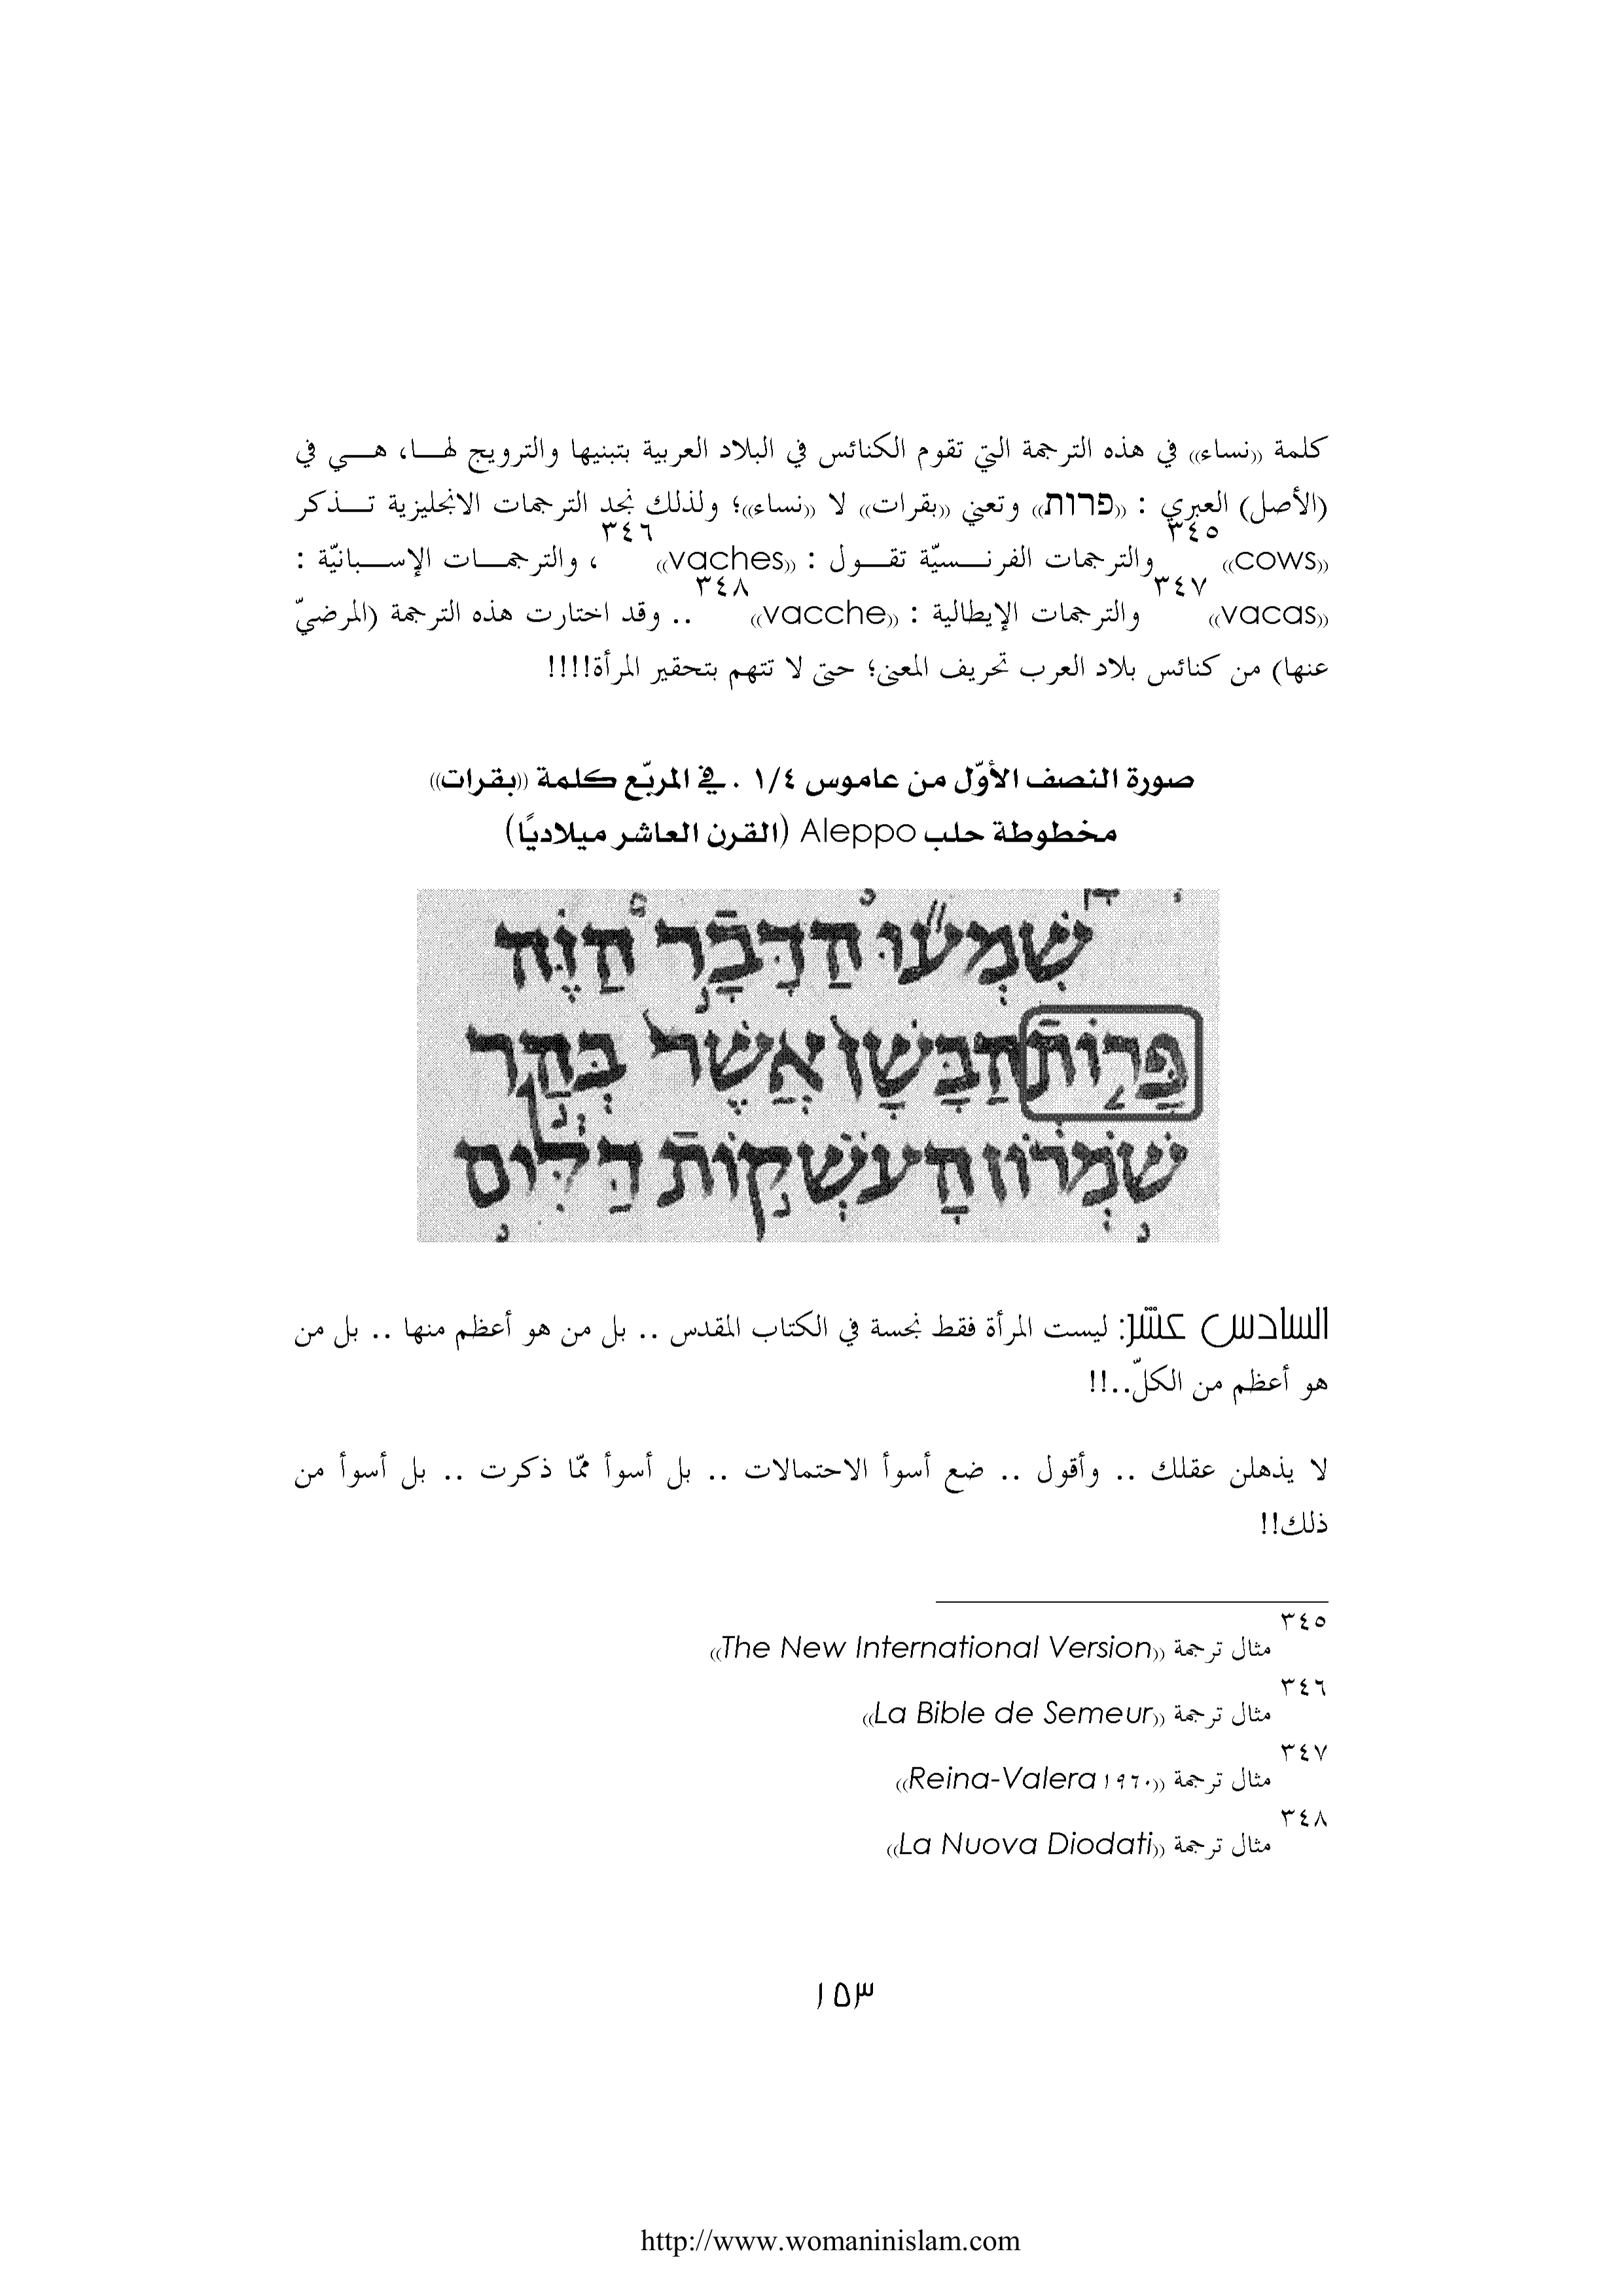 كلمة ((نساء)) في هذه الترجمة التي تقوم الكنائس في البلاد العربية بتبنيها والترويج لهـــا، هـــي في
(الأصل) العبري : ((פרות)) وتعني ((بقرات)) لا ((نساء))؛ ولذلك نجد الترجمات الانجليزية تـــذكر
((cows))٣٤٥ والترجمات الفرنـــسيّة تقـــول : ((vaches))٣٤٦ ، والترجمـــات الإســـبانيّة :
((vacas))٣٤٧ والترجمات الإيطالية : ((vacche))٣٤٨ .. وقد اختارت هذه الترجمة (المرضيّ
عنها) من كنائس بلاد العرب تحريف المعنى؛ حتى لا تتهم بتحقير المرأة!!!!
صورة النصف الأوّل من عاموس ١/٤ . في المربّع كلمة ((بقرات))
مخطوطة حلب Aleppo (القرن العاشر ميلاديًا)
שִׁמְע֞וּ הַדָּבָ֣ר הַזֶּ֗ה
פָּר֤וֹת הַבָּשָׁן֙ אֲשֶׁר֙ בְּהַ֣ר
שֹׁמְר֔וֹן הָעֹשְׁק֣וֹת דַּלִּ֔ים
السادس عشر: ليست المرأة فقط نجسة في الكتاب المقدس .. بل من هو أعظم منها .. بل من
هو أعظم من الكلّ..!!
لا يذهلن عقلك .. وأقول .. ضع أسوأ الاحتمالات .. بل أسوأ ممّا ذكرت .. بل أسوأ من
ذلك!!
٣٤٥ مثال ترجمة ((The New International Version))
٣٤٦ مثال ترجمة ((La Bible de Semeur))
٣٤٧ مثال ترجمة ((Reina-Valera ١٩٦٠))
٣٤٨ مثال ترجمة ((La Nuova Diodati))
١٥٣
http://www.womaninislam.com